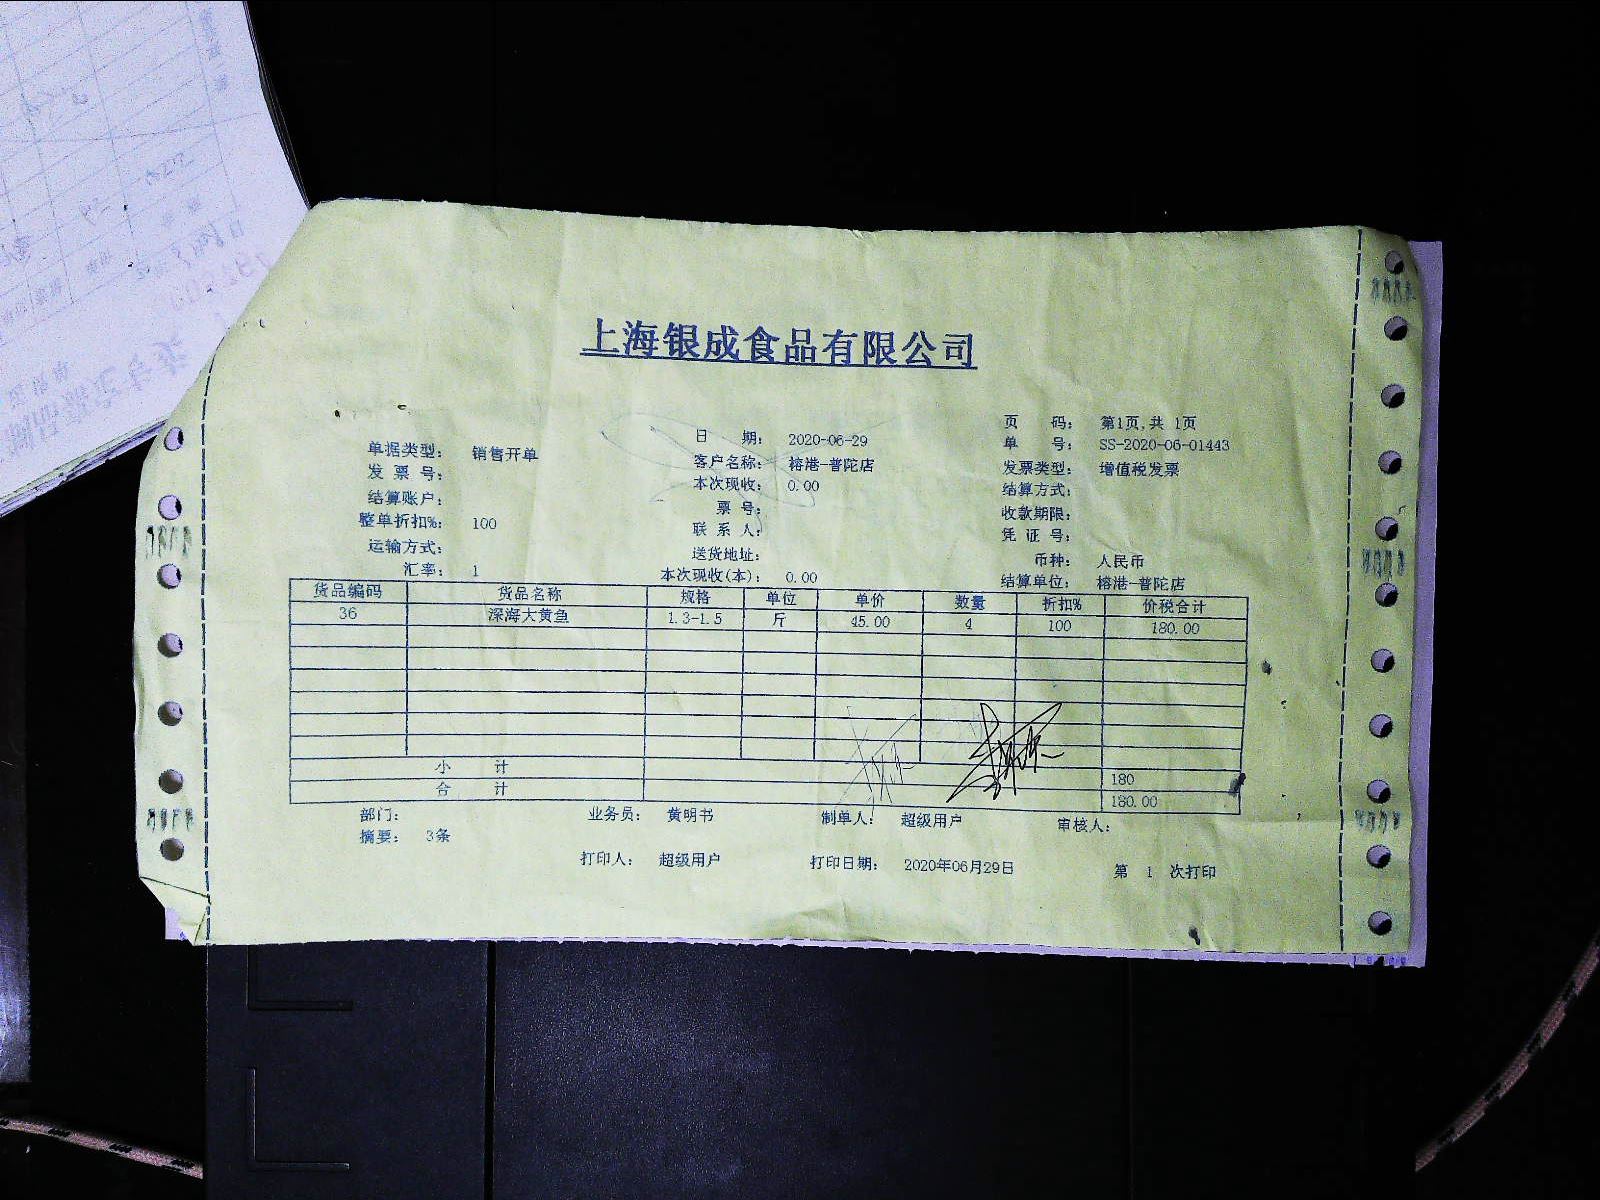 上海银成食品有限公司
页 码: 第1页,共 1页
日 期: 2020-06-29
单 号: SS-2020-06-01443
单据类型: 销售开单
客户名称: 榕港-普陀店
发票类型: 增值税发票
发 票 号:
本次现收: 0.00
结算方式:
结算账户:
票 号:
收款期限:
整单折扣%: 100
联 系 人:
凭 证 号:
运输方式:
送货地址:
币种: 人民币
汇率: 1
本次现收(本): 0.00
结算单位: 榕港-普陀店
货品编码 货品名称 规格 单位 单价 数量 折扣% 价税合计
36 深海大黄鱼 1.3-1.5 斤 45.00 4 100 180.00
小 计 180
合 计 180.00
部门: 业务员: 黄明书 制单人: 超级用户 审核人:
摘要: 3条
打印人: 超级用户 打印日期: 2020年06月29日 第 1 次打印